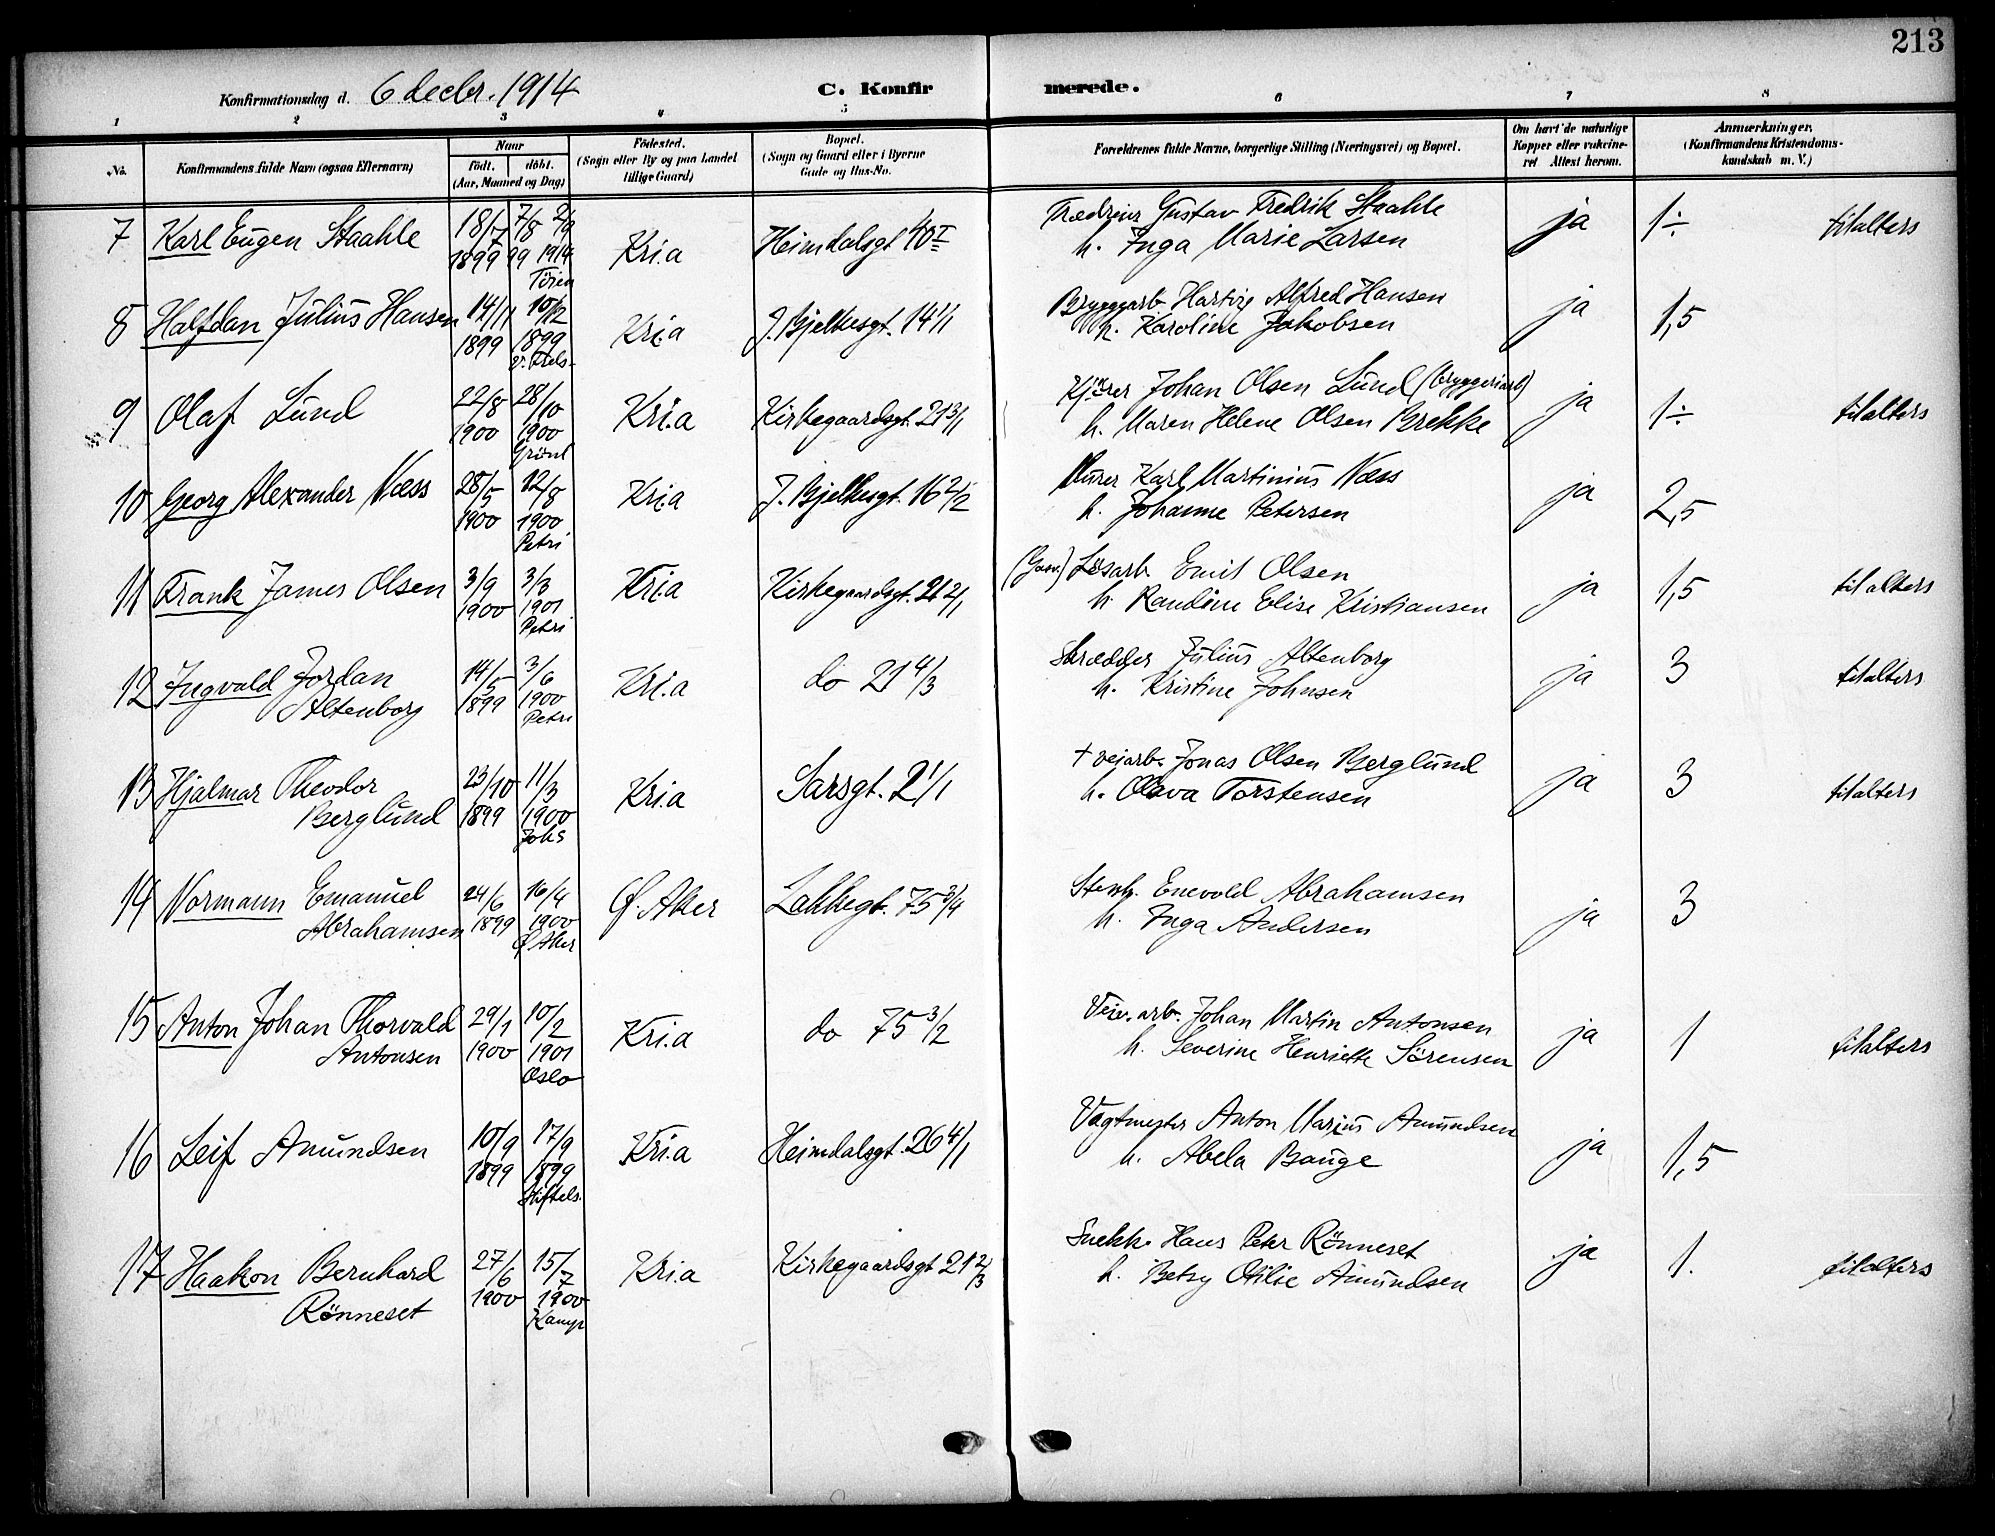 213
Konfirmationsdag d. 6 decbr. 1914
C. Konfir merede.
1 2 3 4 5 6 7 8
No.
Konfirmandens fulde Navn (ogsaa Efternavn)
Naar
födt. döbt.
(Aar, Maaned og Dag)
Födested.
(Sogn eller By og paa Landet
tillige Gaard)
Bopæl.
(Sogn og Gaard eller i Byerne
Gade og Hus-No.
Forældrenes fulde Navne, borgerlige Stilling (Næringsvei) og Bopæl.
Om havt de naturlige
Kopper eller vakcine-
ret Attest herom.
Anmærkninger.
(Konfirmandens Kristendoms-
kundskab m. V.)
7 Karl Eugen Staahle 18/7 1899 7/8 99 2/9 1914 Kri.a Heimdalsgt 40 I
Gustav Fredrik Staahle
h. Inga Marie Larsen
ja 1÷ til alters
8 Halfdan Julius Hansen 14/11 1899 10/12 1899 v. Frels. Kri.a J. Bjelkesgt. 14 1/1
Bryggarb. Hartvig Alfred Hansen
h. Karoline Jakobsen
ja 1,5
9 Olaf Lund 22/8 1900 28/10 1900 Grönl Kri.a Kirkegaardsgt. 21 3/1
Kjörer Johan Olsen Lund (bryggeriarb)
h. Maren Helene Olsen Brekke
ja 1÷ til alters
10 Georg Alexander Næss 28/5 1900 12/8 1900 Petri Kri.a J. Bjelkesgt. 16 2/2
Murer Karl Martinius Næss
h. Johanne Petersen
ja 2,5
11 Frank James Olsen 3/9 1900 3/3 1901 Petri Kri.a Kirkegaardsgt. 21 2/1
Lösarb. Emil Olsen
h. Randine Elise Kristiansen
ja 1,5 til alters
12 Ingvald Jordan
Altenborg
14/5 1899 3/6 1900 Petri Kri.a do 21 4/3
Skrædder Julius Altenborg
h. Kristine Johnsen
ja 3 til alters
13 Hjalmar Theodor
Berglund
23/10 1899 11/3 1900 Johs Kri.a Sarsgt. 2 1/1
+ veiarb. Jonas Olsen Berglund
h. Olava Torstensen
ja 3 til alters
14 Normann Emanuel
Abrahamsen
24/6 1899 16/4 1900 Ø. Aker Ø. Aker Lakkegt. 75 3/4
Stenh. Enevold Abrahamsen
h. Inga Andersen
ja 3
15 Anton Johan Thorvald
Antonsen
29/1 1900 10/2 1901 Oslo Kri.a do 75 3/2
Veiv. arb. Johan Martin Antonsen
h. Severine Henriette Sörensen
ja 1 til alters
16 Leif Amundsen 10/9 1899 17/9 1899 Stiftels. Kri.a Heimdalsgt. 26 4/1
Vagtmester Anton Marius Amundsen
h. Abela Bauge
ja 1,5
17 Haakon Bernhard
Rönneset
27/6 1900 15/7 1900 Kamp Kri.a Kirkegaardsgt 21 2/3
Snekk. Hans Peter Rönneset
h. Betsy Otilie Amundsen
ja 1. til alters